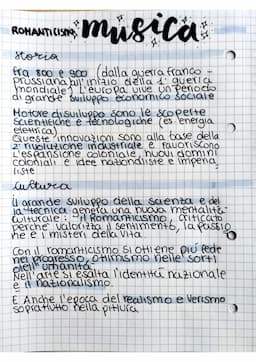 ROMANTICISMO musica
storia
fra 800 e 900 (dalla guerra franco-
prussiana all'inizio della 1° guerra
mondiale) l'EUROPA vive un periodo
di grande sviluppo economico sociale
Motore di sviluppo sono le scoperte
scientifiche e tecnologiche (es energia
elettrica)
Queste innovazioni sono alla base della
2° rivoluzione industriale e favoriscono
l'espansione coloniale, nuovi domini
coloniali e idee nazionaliste e imperia
liste
cultura
il grande sviluppo della scienza e del
la tecnica genera una nuova mentalità
culturale: il Romanticismo, criticato
perché valorizza il sentimento, la passio
ne e i misteri della vita
Con il romanticismo si ottiene più fede
nel progresso, ottimismo nelle sorti
dell'umanità
Nell'arte si esalta l'identità nazionale
e il nazionalismo.
E Anche l'epoca del realismo e verismo
soprattutto nella pittura